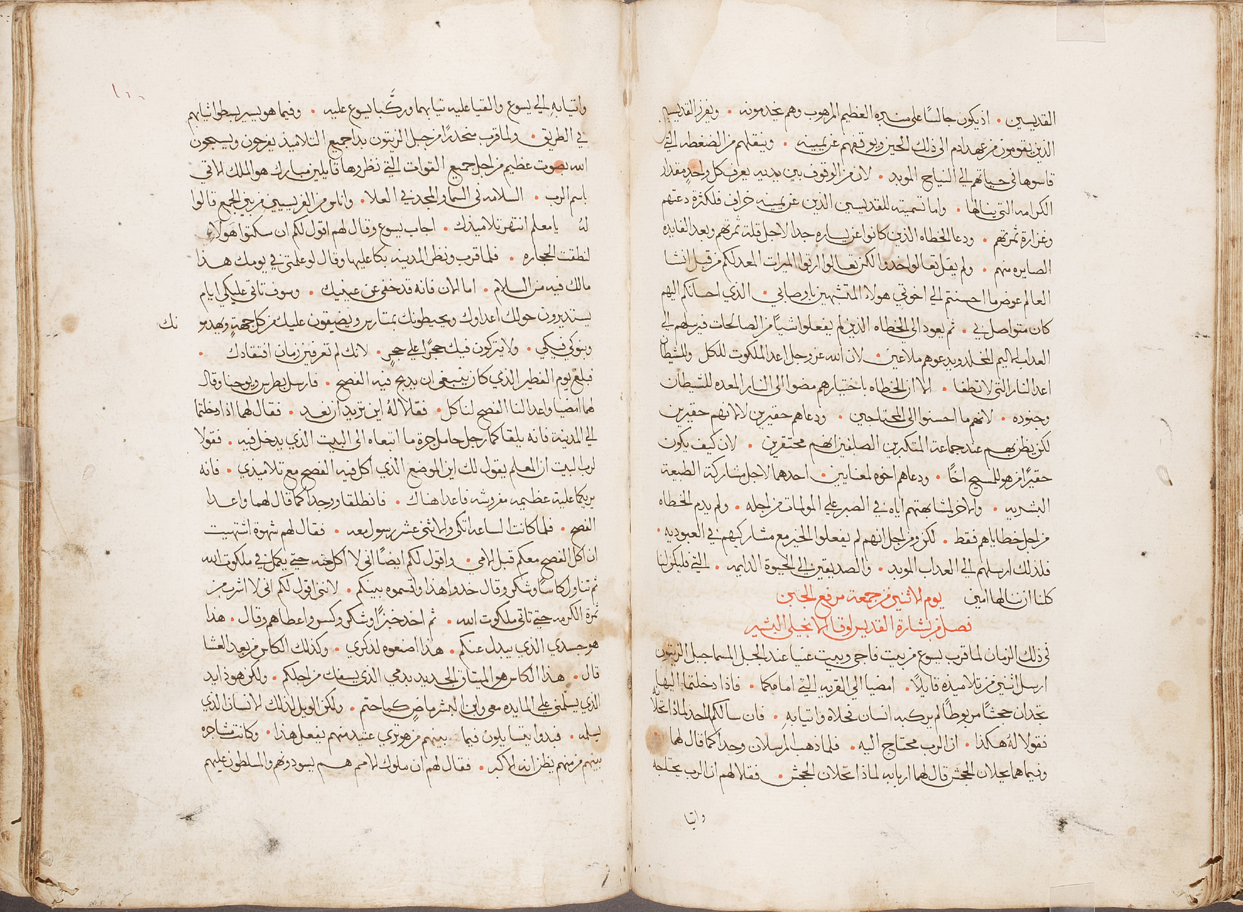 القديسين • اذ يكون جالسًا على منبره العظيم المرهوب وهم يخدمونه • ويفرز القديسين
الذين يقومون من عن يمينه
قاسوها في حياتهم الى النياح الموبد • لان من الوقوف بين يديه يعرف كل واحد مقدار
الكرامه التي ينالها • واما تسميته للقديسين الذين عن يمينه خراف فلكثرة دعتهم
وغزارة ثمرتهم • ودعا الخطاه الذين كانوا عن يساره جدا لاجل قلة ثمرتهم وبعد الفايده
الصايره منهم • ولم يقل تعالوا خدوا لكن تعالوا ارثوا الميرات المعد لكم من قبل انشا
العالم عوض ما احسنتم الى اخوتي هولاء المتشبهين باوصافي • الذي احسانكم اليهم
كان متواصل لي • ثم يعود الى الخطاه الذين لم يفعلوا شيا من الصالحات فيرسلهم الى
العداب الدايم المخلد ويدعوهم ملاعين • لان الله عز وجل اعد الملكوت للكل والشيطان
اعد النار التي لا تطفا • الا ان الخطاه باختيارهم مضوا الى النار المعده للشيطان
وجنوده • لانهم ما احسنوا الى المحتاجين • ودعاهم حقيرين لا لانهم حقيرين
لكن نظرهم عند جماعة المتكبرين الصلفين انهم محتقرين • لان كيف يكون
حقيرًا من هو للمسيح اخًا • ودعاهم اخوه لمعنايين • احدها لاجل مشاركة الطبيعة
البشريه • والاخر لمشابهتهم اياه في الصبر على المولمات من اجله • ولم يدم الخطاه
من اجل خطاياهم فقط • لكن ومن اجل انهم لم يفعلوا الخير مع مشاركيهم في العبوديه •
فلذلك ارسلهم الى العداب الموبد • والصديقين الى الحيوة الدايمه • التي فليكن لنا
كلنا ان ننالها امين يوم الاثنين من جمعة مرفع الجبن
فصل من بشارة القديس لوقا الانجيلي البشير
في ذلك الزمان لما قرب يسوع من بيت فاجي وبيت عنيا عند الجبل المسما جبل الزيتون
ارسل اثنين من تلاميذه قايلاً • امضيا الى القريه التي امامكما • فاذا دخلتما اليها
تجدان جحشًا مربوطًا لم يركبه انسان فحلاه واتيا به • فان سالكم احد لماذا تحلاه
فقولا له هكذا • ان الرب محتاج اليه • فلما ذهب المرسلان وجدا كما قال لهما
وفيما هما يحلان الجحش قال لهما اربابه لماذا تحلان الجحش • فقالا لهم ان الرب يحتاجه
واتيا
واتيا به الى يسوع والقيا عليه ثيابهما وركّبا يسوع عليه • وفيما هو يسير بسطوا ثيابهم
في الطريق • ولما قرب منحدرًا من جبل الزيتون بدا جميع التلاميذ يفرحون ويسبحون
الله بصوت عظيم من اجل جميع القوات التي نظروها قايلين مبارك هو الملك الاتي
باسم الرب • السلامه في السما والمجد في العلا • واناس من الفريسيين من بين الجمع قالوا
لهُ يا معلم انتهر تلاميذك • اجاب يسوع وقال لهم اقول لكم ان سكتوا هولاء
لنطقت الحجاره • فلما قرب ونظر المدينه بكا عليها وقال لو علمتي في يومك هذا
ما لك فيه من السلام • اما الان فانه قد خفي عن عينيك • وسوف تاتي عليكي ايام
يستديرون حولك اعداوك ويحيطونك بمتارس ويضيقون عليك من كل جهةٍ ويهدموك
وبنوكي فيكي • ولا يتركون فيك حجرًا على حجرٍ • لانك لم تعرفين زمان افتقادك •
فبلغ يوم الفطير الذي كان ينبغي ان يدبح فيه الفصح • فارسل بطرس ويوحنا وقال
لهما امضيا واعدا لنا الفصح لناكل • فقالا لهُ اين تريد ان نعد • فقال لهما اذا دخلتما
الى المدينه فانه يلقاكما رجل حامل جرة ما اتبعاه الى البيت الذي يدخل فيه • فقولا
لرب البيت ان المعلم يقول لك اين الموضع الذي اكل فيه الفصح مع تلاميذي • فانه
يريكما علية عظيمه مفروشه فاعدا هناك • فانطلقا ووجدا كما قال لهما واعدا
الفصح • فلما كانت الساعه اتكى والاثنى عشر رسول معه • فقال لهم شهوة اشتهيت
ان اكل الفصح معكم قبل المي • واقول لكم ايضًا اني لا اكل منه حتى يكمل في ملكوت الله
ثم تناول كاسًا وشكر وقال خدوا هذا واقسموه بينكم • لانني اقول لكم اني لا اشرب من
ثمرة الكرمه حتى تاتي ملكوت الله • ثم اخذ خبزًا وشكر وكسر واعطاهم وقال • هذا
هو جسدي الذي يبدل عنكم • هذا اصنعوه لذكري • وكذلك الكاس من بعد العشا
قال • هذا الكاس هو الميتاق الجديد بدمي الذي يسفك من اجلكم • ولكن هوذا يد
الذي يسلمني على المايده معي وابن البشر ماضٍ كما حتم • ولكن الويل لذلك الانسان الذي
يسلمه • فبدوا يتسايلون فيما بينهم من هو ترى عتيد منهم يفعل هذا • وكانت مشاجره
بينهم من منهم يظن انه الاكبر • فقال لهم ان ملوك الامم هم يسودونهم والمسلطون عليهم